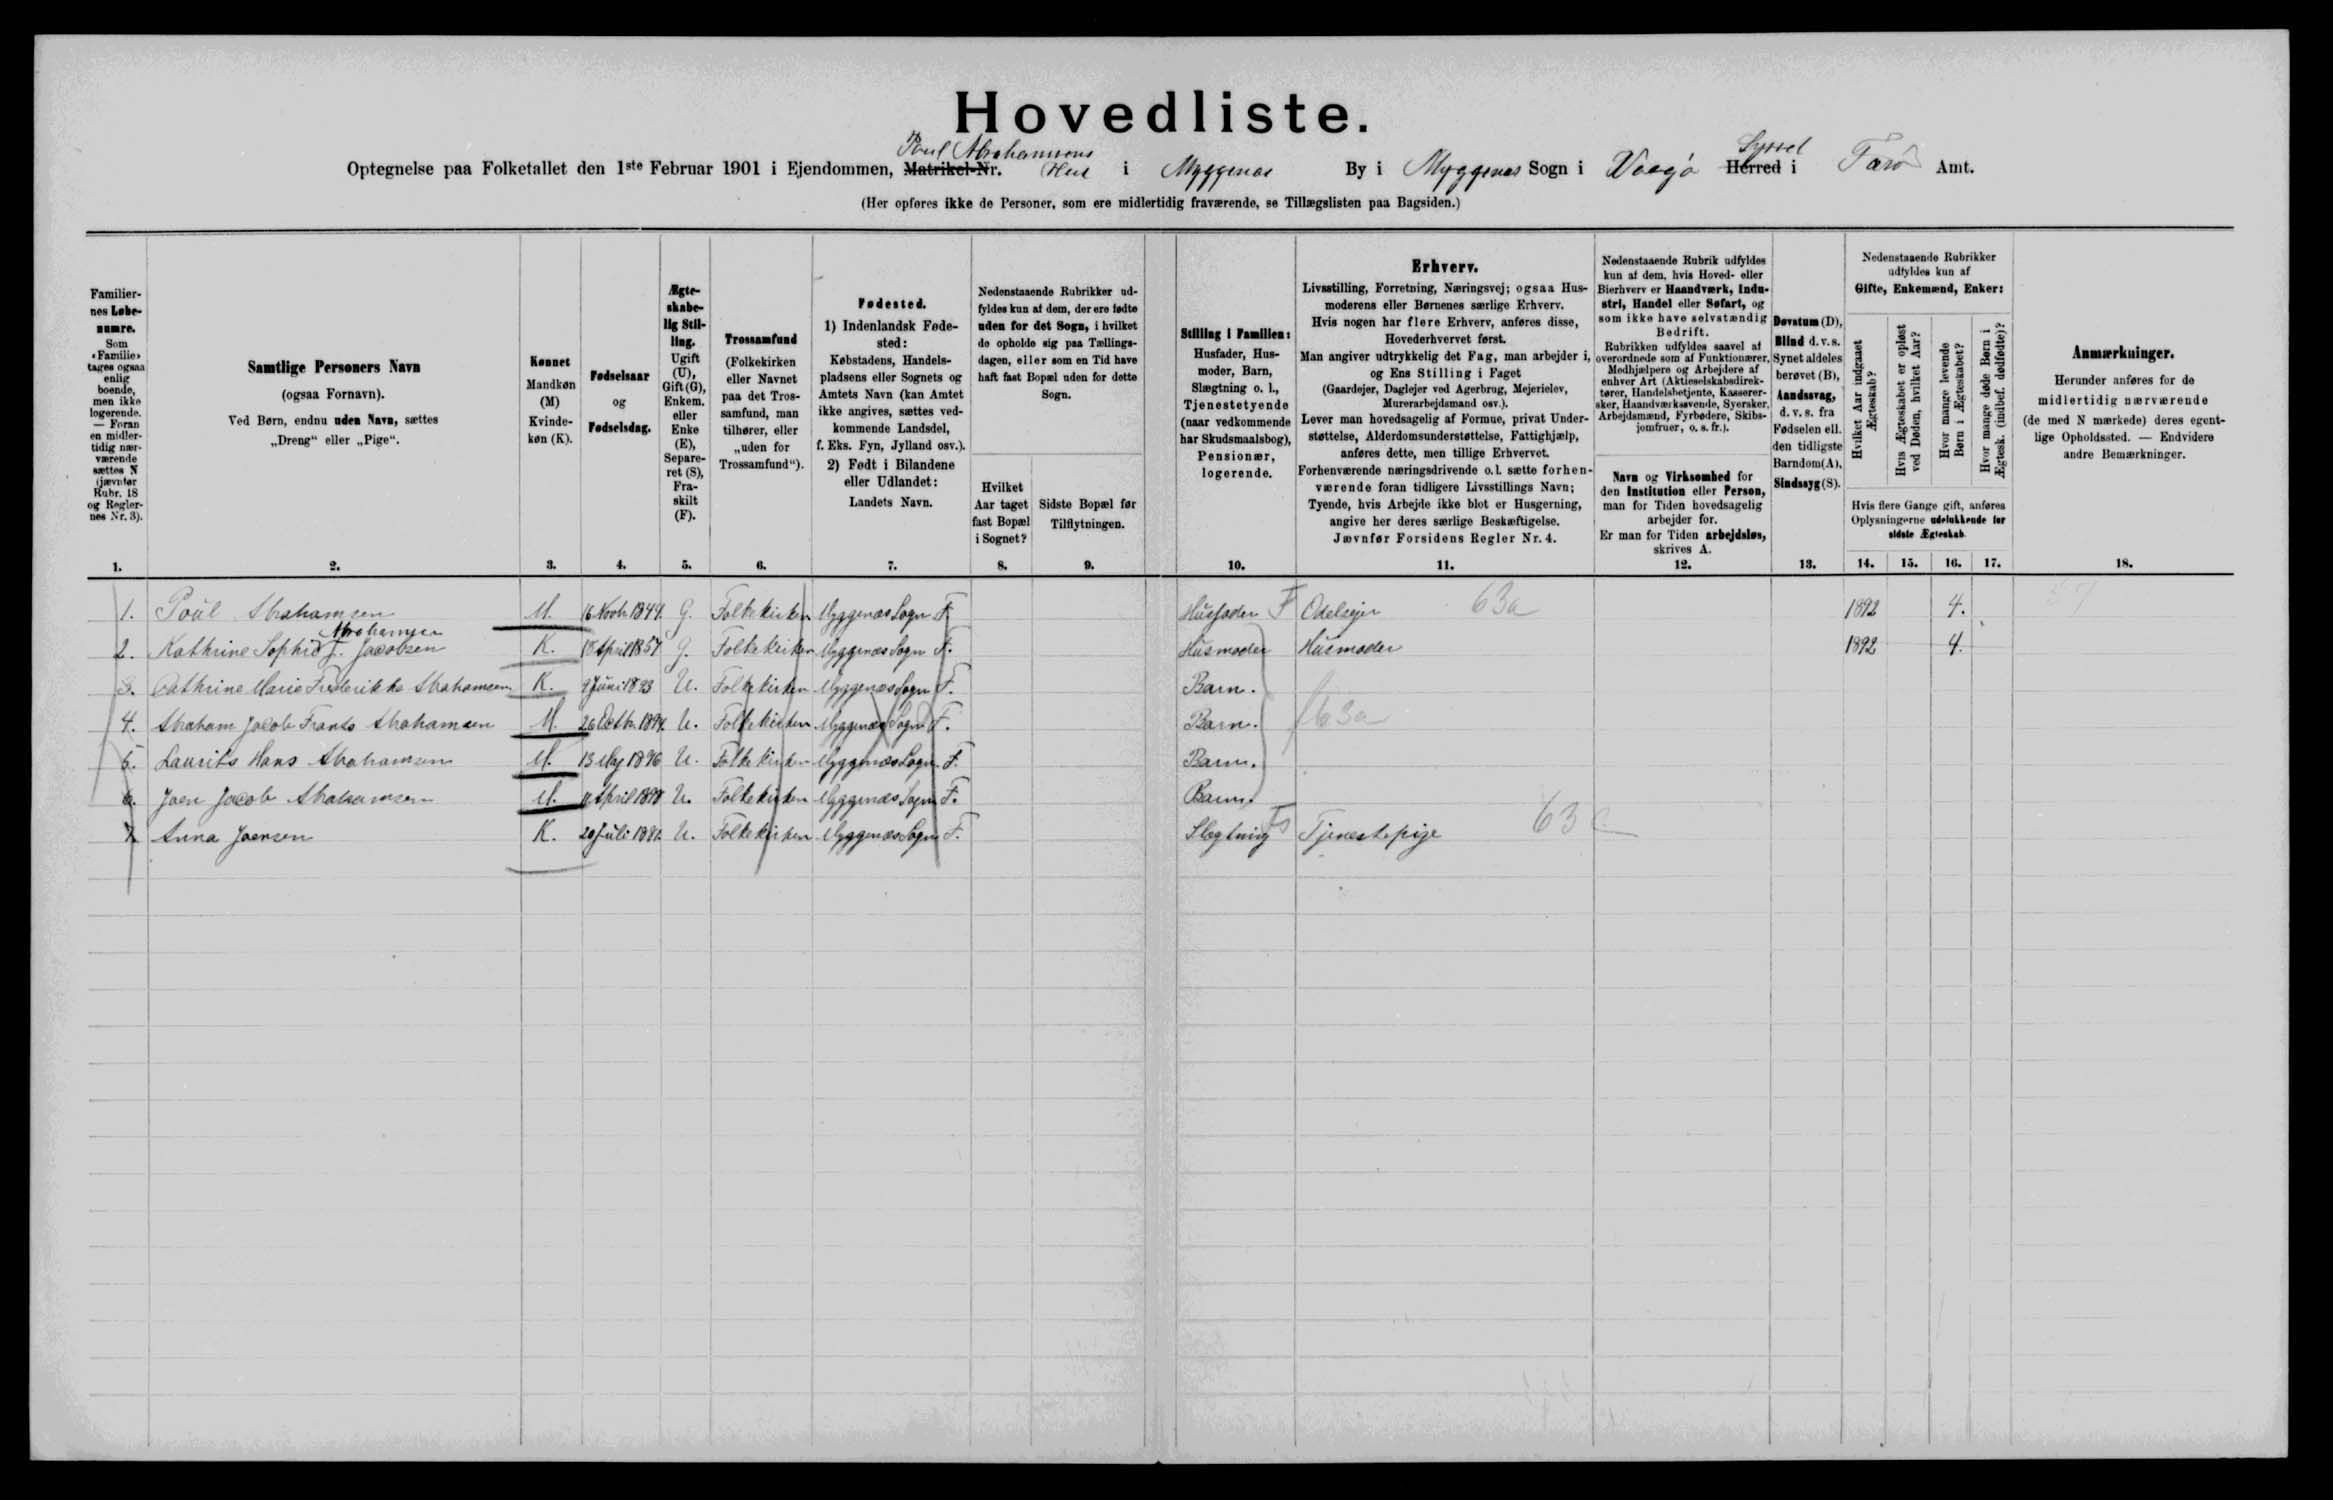 Hovedliste.
Poul Abrahamsens Syssel
Optegnelse paa Folketallet den 1ste Februar 1901 i Ejendommen, Matrikel-Nr. Hus i Myggenæs By i Myggenæs Sogn i Vaagø Herred i Færø Amt.
(Her opføres ikke de Personer, som ere midlertidig fraværende, se Tillægslisten paa Bagsiden.)
Familiernes Løbenumre.
Som «Familie» tages ogsaa enlig boende, men ikke logerende. — Foran en midlertidig nærværende sættes N (jævnfør Rubr. 18 og Reglernes Nr. 3).
Samtlige Personers Navn
(ogsaa Fornavn).
Ved Børn, endnu uden Navn, sættes
„Dreng“ eller „Pige“.
Kønnet
Mandkøn (M)
Kvindekøn (K).
Fødselsaar
og
Fødselsdag.
Ægteskabelig Stilling.
Ugift (U), Gift (G), Enkem. eller Enke (E), Separeret (S), Fraskilt (F).
Trossamfund
(Folkekirken eller Navnet paa det Trossamfund, man tilhører, eller „uden for Trossamfund“).
Fødested.
1) Indenlandsk Fødested:
Købstadens, Handelspladsens eller Sognets og Amtets Navn (kan Amtet ikke angives, sættes vedkommende Landsdel, f. Eks. Fyn, Jylland osv.).
2) Født i Bilandene eller Udlandet:
Landets Navn.
Nedenstaaende Rubrikker udfyldes kun af dem, der ere fødte uden for det Sogn, i hvilket de opholde sig paa Tællingsdagen, eller som en Tid have haft fast Bopæl uden for dette Sogn.
Hvilket Aar taget fast Bopæl i Sognet?
Sidste Bopæl før Tilflytningen.
Stilling i Familien:
Husfader, Husmoder, Barn, Slægtning o. l., Tjenestetyende (naar vedkommende har Skudsmaalsbog), Pensionær, logerende.
Erhverv.
Livsstilling, Forretning, Næringsvej; ogsaa Husmoderens eller Børnenes særlige Erhverv.
Hvis nogen har flere Erhverv, anføres disse, Hovederhvervet først.
Man angiver udtrykkelig det Fag, man arbejder i, og Ens Stilling i Faget
(Gaardejer, Daglejer ved Agerbrug, Mejerielev, Murerarbejdsmand osv.).
Lever man hovedsagelig af Formue, privat Understøttelse, Alderdomsunderstøttelse, Fattighjælp, anføres dette, men tillige Erhvervet.
Forhenværende næringsdrivende o. l. sætte forhenværende foran tidligere Livsstillings Navn;
Tyende, hvis Arbejde ikke blot er Husgerning, angive her deres særlige Beskæftigelse.
Jævnfør Forsidens Regler Nr. 4.
Nedenstaaende Rubrik udfyldes kun af dem, hvis Hoved- eller Bierhverv er Haandværk, Industri, Handel eller Søfart, og som ikke have selvstændig Bedrift.
Rubrikken udfyldes saavel af overordnede som af Funktionærer, Medhjælpere og Arbejdere af enhver Art (Aktieselskabsdirektører, Handelsbetjente, Kasserersker, Haandværkssvende, Syersker, Arbejdsmænd, Fyrbødere, Skibsjomfruer, o. s. fr.).
Navn og Virksomhed for den Institution eller Person, man for Tiden hovedsagelig arbejder for.
Er man for Tiden arbejdsløs, skrives A.
Døvstum (D),
Blind d. v. s. Synet aldeles berøvet (B),
Aandssvag, d. v. s. fra Fødselen ell. den tidligste Barndom (A),
Sindssyg (S).
Nedenstaaende Rubrikker udfyldes kun af
Gifte, Enkemænd, Enker:
Hvilket Aar indgaaet Ægteskab?
Hvis Ægteskabet er opløst ved Døden, hvilket Aar?
Hvor mange levende Børn i Ægteskabet?
Hvor mange døde Børn i Ægtesk. (indbef. dødfødte)?
Hvis flere Gange gift, anføres Oplysningerne udelukkende for sidste Ægteskab.
Anmærkninger.
Herunder anføres for de midlertidig nærværende (de med N mærkede) deres egentlige Opholdssted. — Endvidere andre Bemærkninger.
1. 2. 3. 4. 5. 6. 7. 8. 9. 10. 11. 12. 13. 14. 15. 16. 17. 18.
1. Poul Abrahamsen M. 16 Novbr. 1844. G. Folkekirken Myggenæs Sogn F. Husfader F Odelsejer 63a 1892 4.
Abrahamsen
2. Kathrine Sophie f. Jacobsen K. April 1857 G. Folkekirken Myggenæs Sogn F. Husmoder Husmoder 1892 4.
3. Cathrine Marie Frederikke Abrahamsen K. 9 Juni 1893 U. Folkekirken Myggenæs Sogn F. Barn.
4. Abraham Jacob Frants Abrahamsen M. 26 Octbr. 1894. U. Folkekirken Myggenæs Sogn F. Barn. 63a
5. Laurits Hans Abrahamsen M. 13 Maj 1896 U. Folkekirken Myggenæs Sogn F. Barn.
6. Joen Jacob Abrahamsen M. April 1898 U. Folkekirken Myggenæs Sogn F. Barn.
7. Anna Joensen K. 20 Juli 1881. U. Folkekirken Myggenæs Sogn F. Slægtning Tjenestepige 63